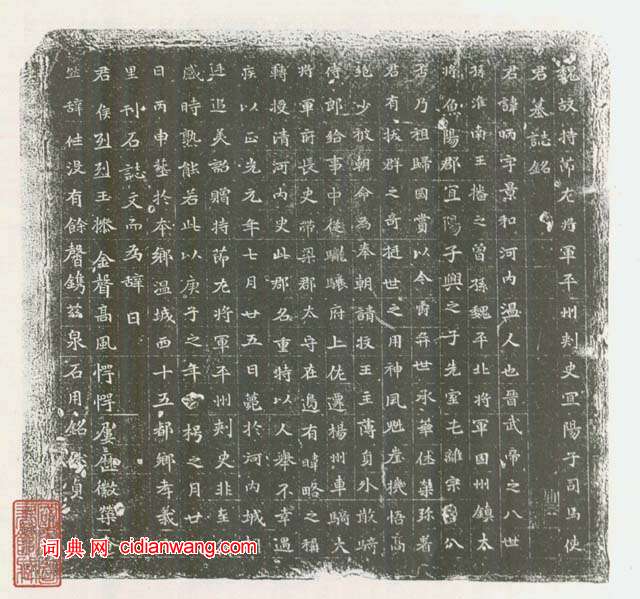 魏故持節左將軍平州刾史宜陽子司馬使
君墓誌銘
君諱昞字景和河內溫人也晉武帝之八世
孫淮南王播之曾孫魏平北將軍固州鎮大
將魚陽郡宜陽子興之子先室毛離宗
公
乃祖歸國賞以今爵弈世承華休榮弥著
君有拔群之奇挺世之用神風魁崖機悟高
絶少被朝命為奉朝請牧王主薄員外散騎
侍郎給事中從驤驤府上佐遷楊州車騎大
將軍府長史帶梁郡太守在邊有暐略之稱
轉授清河內史此郡名重特以人舉不幸遇
疾以正光元年七月廿五日薨於河內城
追美詔贈持節左將軍平州刾史非至
感時熟能若此以庚子之年
拐之月廿
日丙申葬於本鄉溫城西十五都鄉孝義
里刊石誌文而為辞曰
君侯烈烈玉
金聲高風愕愕屢
徽榮
辞往没有餘馨鐫兹泉石用銘
詞典网 cidianwang.com